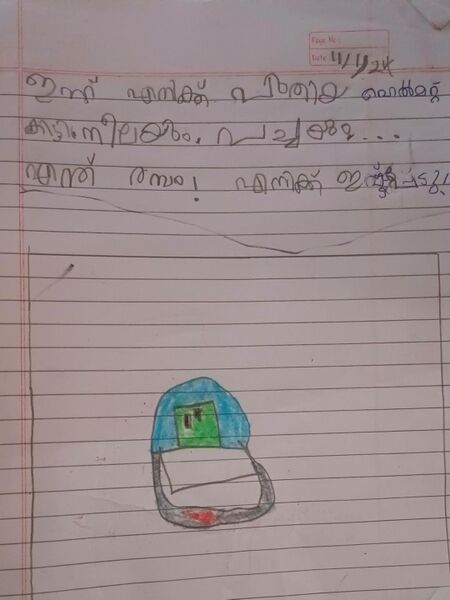 Page No:
Date: 11/1/24
ഇന്ന് എനിക്ക് പുതിയ ഹെൽമറ്റ്
കിട്ടി. നീലയും, പച്ചയും...
എന്ത് രസം! എനിക്ക് ഇഷ്ട്ടപ്പെട്ടു!